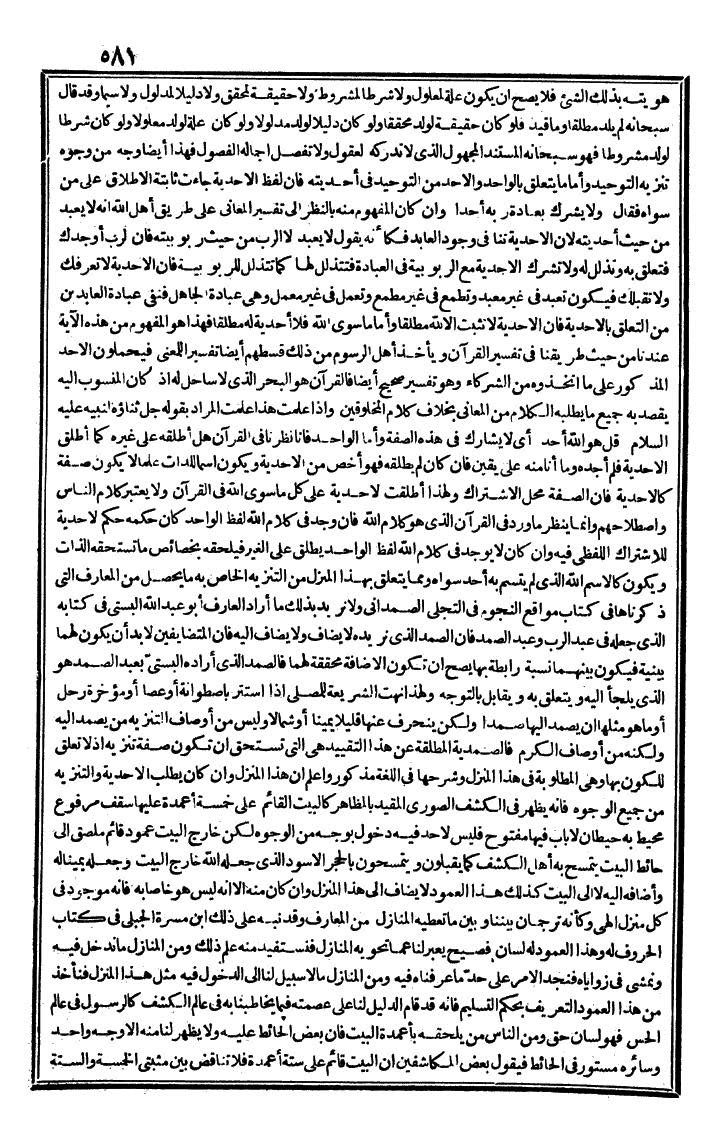 ٥٨١
هويته بذلك الشئ فلا يصح أن يكون علة لمعلول ولا شرطا لمشروط ولا حقيقة لمحقق ولا دليلا لمدلول ولا سيما وقد قال
سبحانه لم يلد مطلقا وما قيد فلو كان حقيقة لولد محققا ولو كان دليلا لولد مدلولا ولو كان علة لولد معلولا ولو كان شرطا
لولد مشروطا فهو سبحانه المستند المجهول الذى لا تدركه لعقول ولا تفصل اجاله الفصول فهذا أيضا وجه من وجوه
تنزيه التوحيد وأما ما يتعلق بالواحد والاحد من التوحيد فى أحديته فان لفظ الاحدية جاءت ثابتة الاطلاق على من
سواه فقال ولا يشرك بعبادة ربه أحدا وان كان المفهوم منه بالنظر الى تفسير المعانى على طريق أهل الله انه لا يعبد
من حيث أحديته لان الاحدية تنافى وجود العابد فكأنه يقول لا يعبد الا الرب من حيث ربوبيته فان الرب أوجدك
فتعلق به وتذلل له ولا تشرك الاحدية مع الربوبية فى العبادة فتتذلل لها كما تتذلل للربوبية فان الاحدية لا تعرفك
ولا تقبلك فيكون تعبد فى غير معبد وتطمع فى غير مطمع وتعمل فى غير معمل وهى عبادة الجاهل فنفى عبادة العابدين
من التعلق بالاحدية فان الاحدية لا تثبت الا لله مطلقا وأما ما سوى الله فلا أحدية له مطلقا فهذا هو المفهوم من هذه الآية
عندنا من حيث طريقنا فى تفسير القرآن ويأخذ أهل الرسوم من ذلك قسطهم أيضا تفسيرا للمعنى فيحملون الاحد
المذكور على ما اتخذوه من الشركاء وهو تفسير صحيح أيضا فالقرآن هو البحر الذى لا ساحل له اذ كان المنسوب اليه
يقصد به جميع ما يطلبه الكلام من المعانى بخلاف كلام المخلوقين واذا علمت هذا علمت المراد بقوله جل ثناؤه لنبيه عليه
السلام قل هو الله أحد أى لا يشارك فى هذه الصفة وأما الواحد فانا نظرنا فى القرآن هل أطلقه على غيره كما أطلق
الاحدية فلم أجده وما أنا منه على يقين فان كان لم يطلقه فهو أخص من الاحدية ويكون اسما للذات علما لا يكون صفة
كالاحدية فان الصفة محل الاشتراك ولهذا أطلقت الاحدية على كل ما سوى الله فى القرآن ولا يعتبر كلام الناس
واصطلاحهم وانما ينظر ما ورد فى القرآن الذى هو كلام الله فان وجد فى كلام الله لفظ الواحد كان حكمه حكم الاحدية
للاشتراك اللفظى فيه وان كان لا يوجد فى كلام الله لفظ الواحد يطلق على الغير فيلحقه بخصائص ما تستحقه الذات
ويكون كالاسم الله الذى لم يتسم به أحد سواه ومما يتعلق بهذا المنزل من التنزيه الخاص به ما يحصل من المعارف التى
ذكرناها فى كتاب مواقع النجوم فى التجلى الصمدانى ولا نريد بذلك ما أراد العارف أبو عبد الله البستى فى كتابه
الذى جعله فى عبد الرب وعبد الصمد فان الصمد الذى نريده لا يضاف ولا يضاف اليه فان المتضايفين لابد أن يكون لهما
بينية فيكون بينهما نسبة رابطة بها يصح ان تكون الاضافة محققة لهما فالصمد الذى أراده البستى بعبد الصمد هو
الذى يلجأ اليه ويتعلق به ويقابل بالتوجه ولهذا نهت الشريعة للمصلى اذا استتر باصطوانة أو عصا أو مؤخرة رحل
أو ما هو مثلها ان يصمد اليها صمدا ولكن ينحرف عنها قليلا يمينا أو شمالا وليس من أوصاف التنزيه من يصمد اليه
ولكنه من أوصاف الكرم فالصمدية المطلقة عن هذا التقييد هى التى تستحق ان تكون صفة تنزيه اذ لا تعلق
للكون بها وهى المطلوبة فى هذا المنزل وشرحها فى اللغة مذكور واعلم ان هذا المنزل وان كان يطلب الاحدية والتنزيه
من جميع الوجوه فانه يظهر فى الكشف الصورى المقيد بالمظاهر كالبيت القائم على خمسة أعمدة عليها سقف مرفوع
محيط به حيطان لا باب فيها مفتوح فليس لاحد فيه دخول بوجه من الوجوه لكن خارج البيت عمود قائم ملصق الى
حائط البيت يتمسح به أهل الكشف كما يقبلون ويتمسحون بالحجر الاسود الذى جعله الله خارج البيت وجعله يمينا له
وأضافه اليه لا الى البيت كذلك هذا العمود لا يضاف الى هذا المنزل وان كان منه الا انه ليس هو خاصا به فانه موجود فى
كل منزل الهى وكأنه ترجمان بيننا وبين ما تعطيه المنازل من المعارف وقد نبه على ذلك ابن مسرة الجبلى فى كتاب
الحروف له وهذا العمود له لسان فصيح يعبر لنا عما تحويه المنازل فنستفيد منه علم ذلك ومن المنازل ما ندخل فيه
ونمشى فى زواياه فنجد الامر على حد ما عرفناه فيه ومن المنازل ما لا سبيل لنا الى الدخول فيه مثل هذا المنزل فنأخذ
من هذا العمود التعريف بحكم التسليم فانه قد قام الدليل لنا على عصمته فيما يخاطبنا به فى عالم الكشف كالرسول فى عالم
الحس فهو لسان حق ومن الناس من يلحقه بأعمدة البيت فان بعض الحائط عليه ولا يظهر لنا منه الا وجه واحد
وسائره مستور فى الحائط فيقول بعض المكاشفين ان البيت قائم على ستة أعمدة فلا تناقض بين مثبتى الخمسة والستة